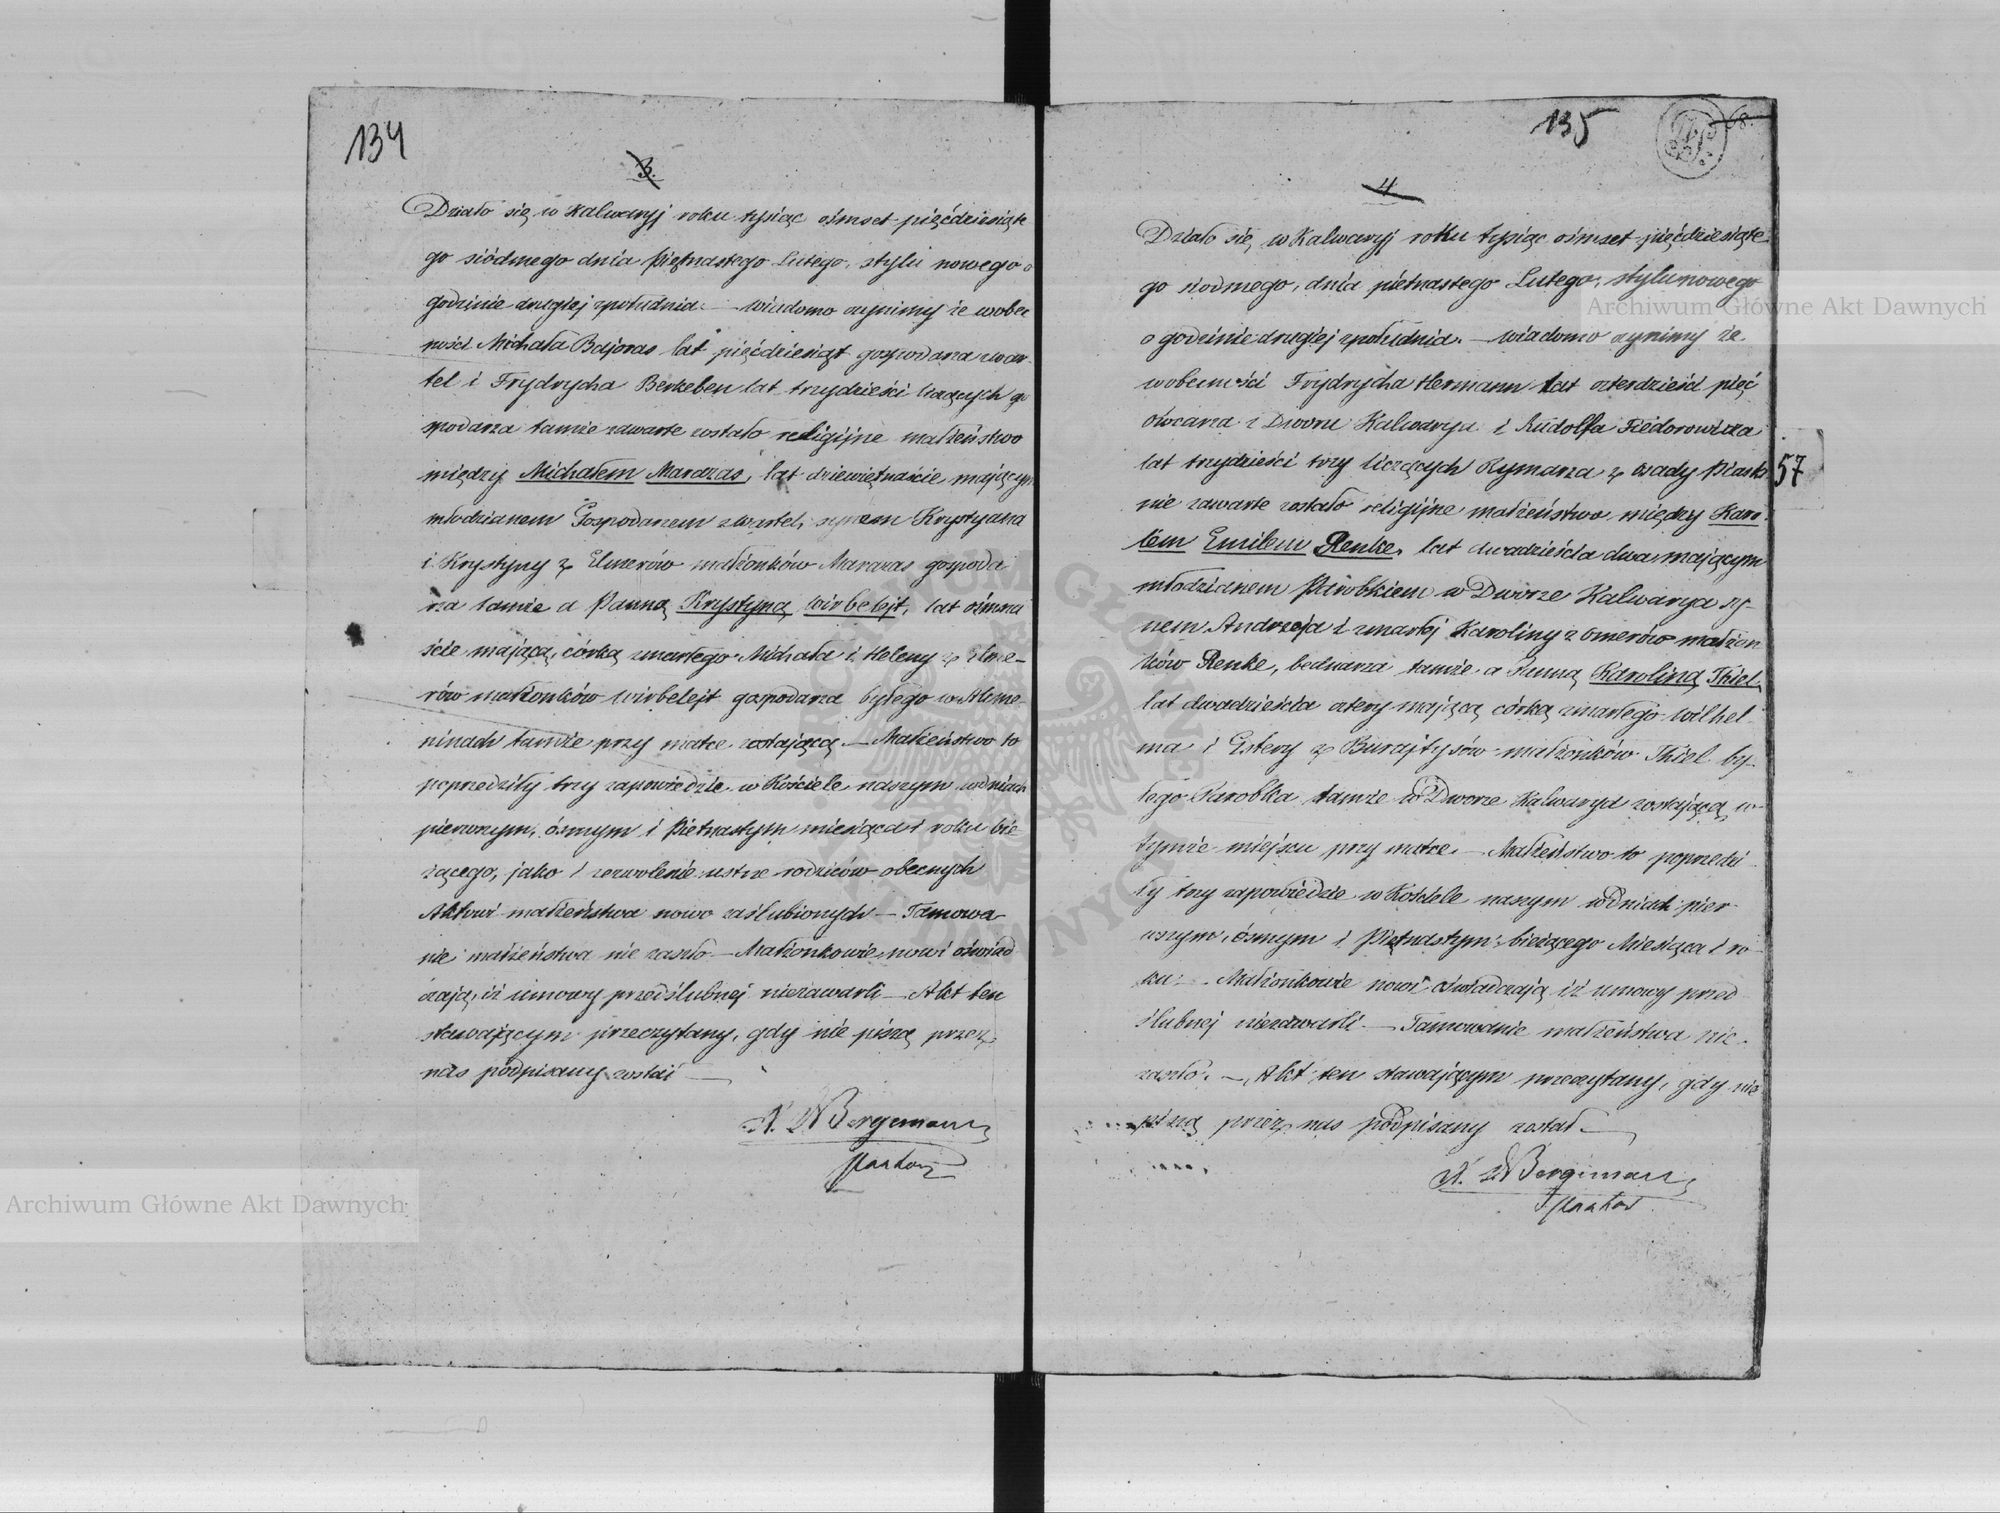 134
3.
Działo się w Kalwaryj roku tysiąc ośmset pięćdziesiąte
go siódmego dnia piętnastego Lutego, stylu nowego o
godzinie drugiej zpołudnia. — Wiadomo czynimy że wobec
ności Michała Bajoras lat pięćdziesiąt gospodarza zwar-
tel i Frydrycha Berkeben lat trzydzieści liczących go
spodarza tamże zawarte zostało religijne małżeństwo
między Michałem Marczas, lat dziewiętnaście mającym
młodzianem Gospodarzem zwartel, synem Krystyana
i Krystyny z Elmerów małżonków Marczas gospoda
rza tamże a Panną Krystyną Wirbelejt, lat ośmna
ście mającą, córką zmarłego Michała i Heleny z Elme-
rów małżonków Wirbelejt gospodarza byłego w
ninach tamże przy matce zostającą — Małżeństwo to
poprzedziły trzy zapowiedzie w Kościele naszym wdniach
pierwszym, ósmym i Piętnastym miesiąca i roku bie-
żącego, jako i zezwolenie ustne rodziców obecnych
Aktowi małżeństwa nowo zaślubionych — Tamowa
nie małżeństwa nie zaszło — Małżonkowie nowi oświad
czają, iż umowy przedślubnej niezawarli — Akt ten
stawającym przeczytany, gdy nie piszą przez
nas podpisany został —
X. W Bergemann
Pastor
135
68.
4
Działo się w Kalwaryj roku tysiąc ośmset pięćdziesiąte
go siodmego, dnia piętnastego Lutego, stylu nowego
o godzinie drugiej zpołudnia. — Wiadomo czynimy że
wobecności Frydrycha Hermann lat czterdzieści pięć
Owczarza z Dworu Kalwarya i Rudolfa Fiedorowicza
lat trzydzieści trzy liczących Rymarza z osady Piasko
nie zawarte zostało religijne małżeństwo między Karo
lem Emilem Renke, lat dwadzieścia dwa mającym
młodzianem Parobkiem w Dworze Kalwarya sy-
nem Andrzeja i zmarłej Karoliny z Omerów małżon
ków Renke, bednarza tamże a Panną Karoliną Thiel
lat dwadzieścia cztery mającą córką zmarłego Wilhel-
ma i Estery z Burajtysów małżonków Thiel by-
łego Parobka tamże w Dworze Kalwarya zostającą w
tymże miejscu przy matce. — Małżeństwo to poprzedzi
ły trzy zapowiedzie w Kościele naszym wdniach pier-
wszym, ósmym i Piętnastym bieżącego Miesiąca i ro-
ku. — Małżonkowie nowi oświadczają iż umowy przed
ślubnej niezawarli. — Tamowanie małżeństwa nie
zaszło. — Akt ten stawającym przeczytany, gdy nie
piszą przez nas podpisany został —
X. W Bergemann
Pastor
57
Archiwum Główne Akt Dawnych
Archiwum Główne Akt Dawnych
ARCHIWUM GŁÓWNE AKT DAWNYCH